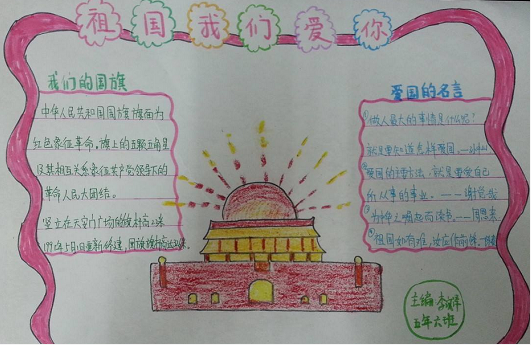 祖国我们爱你
我们的国旗
中华人民共和国国旗旗面为
红色象征革命,旗上的五颗五角星
及其相互关系象征共产党领导下的
革命人民大团结。
竖立在天安门广场的
爱国的名言
①做人最大的事情是什么呢?
就是要知道怎样爱国。
②爱国的主要方法,就是要爱自己
所从事的事业。——谢觉哉
③为中华之崛起而读书。——周恩来
④祖国如有难,汝应作前锋。
主编:李
五年六班